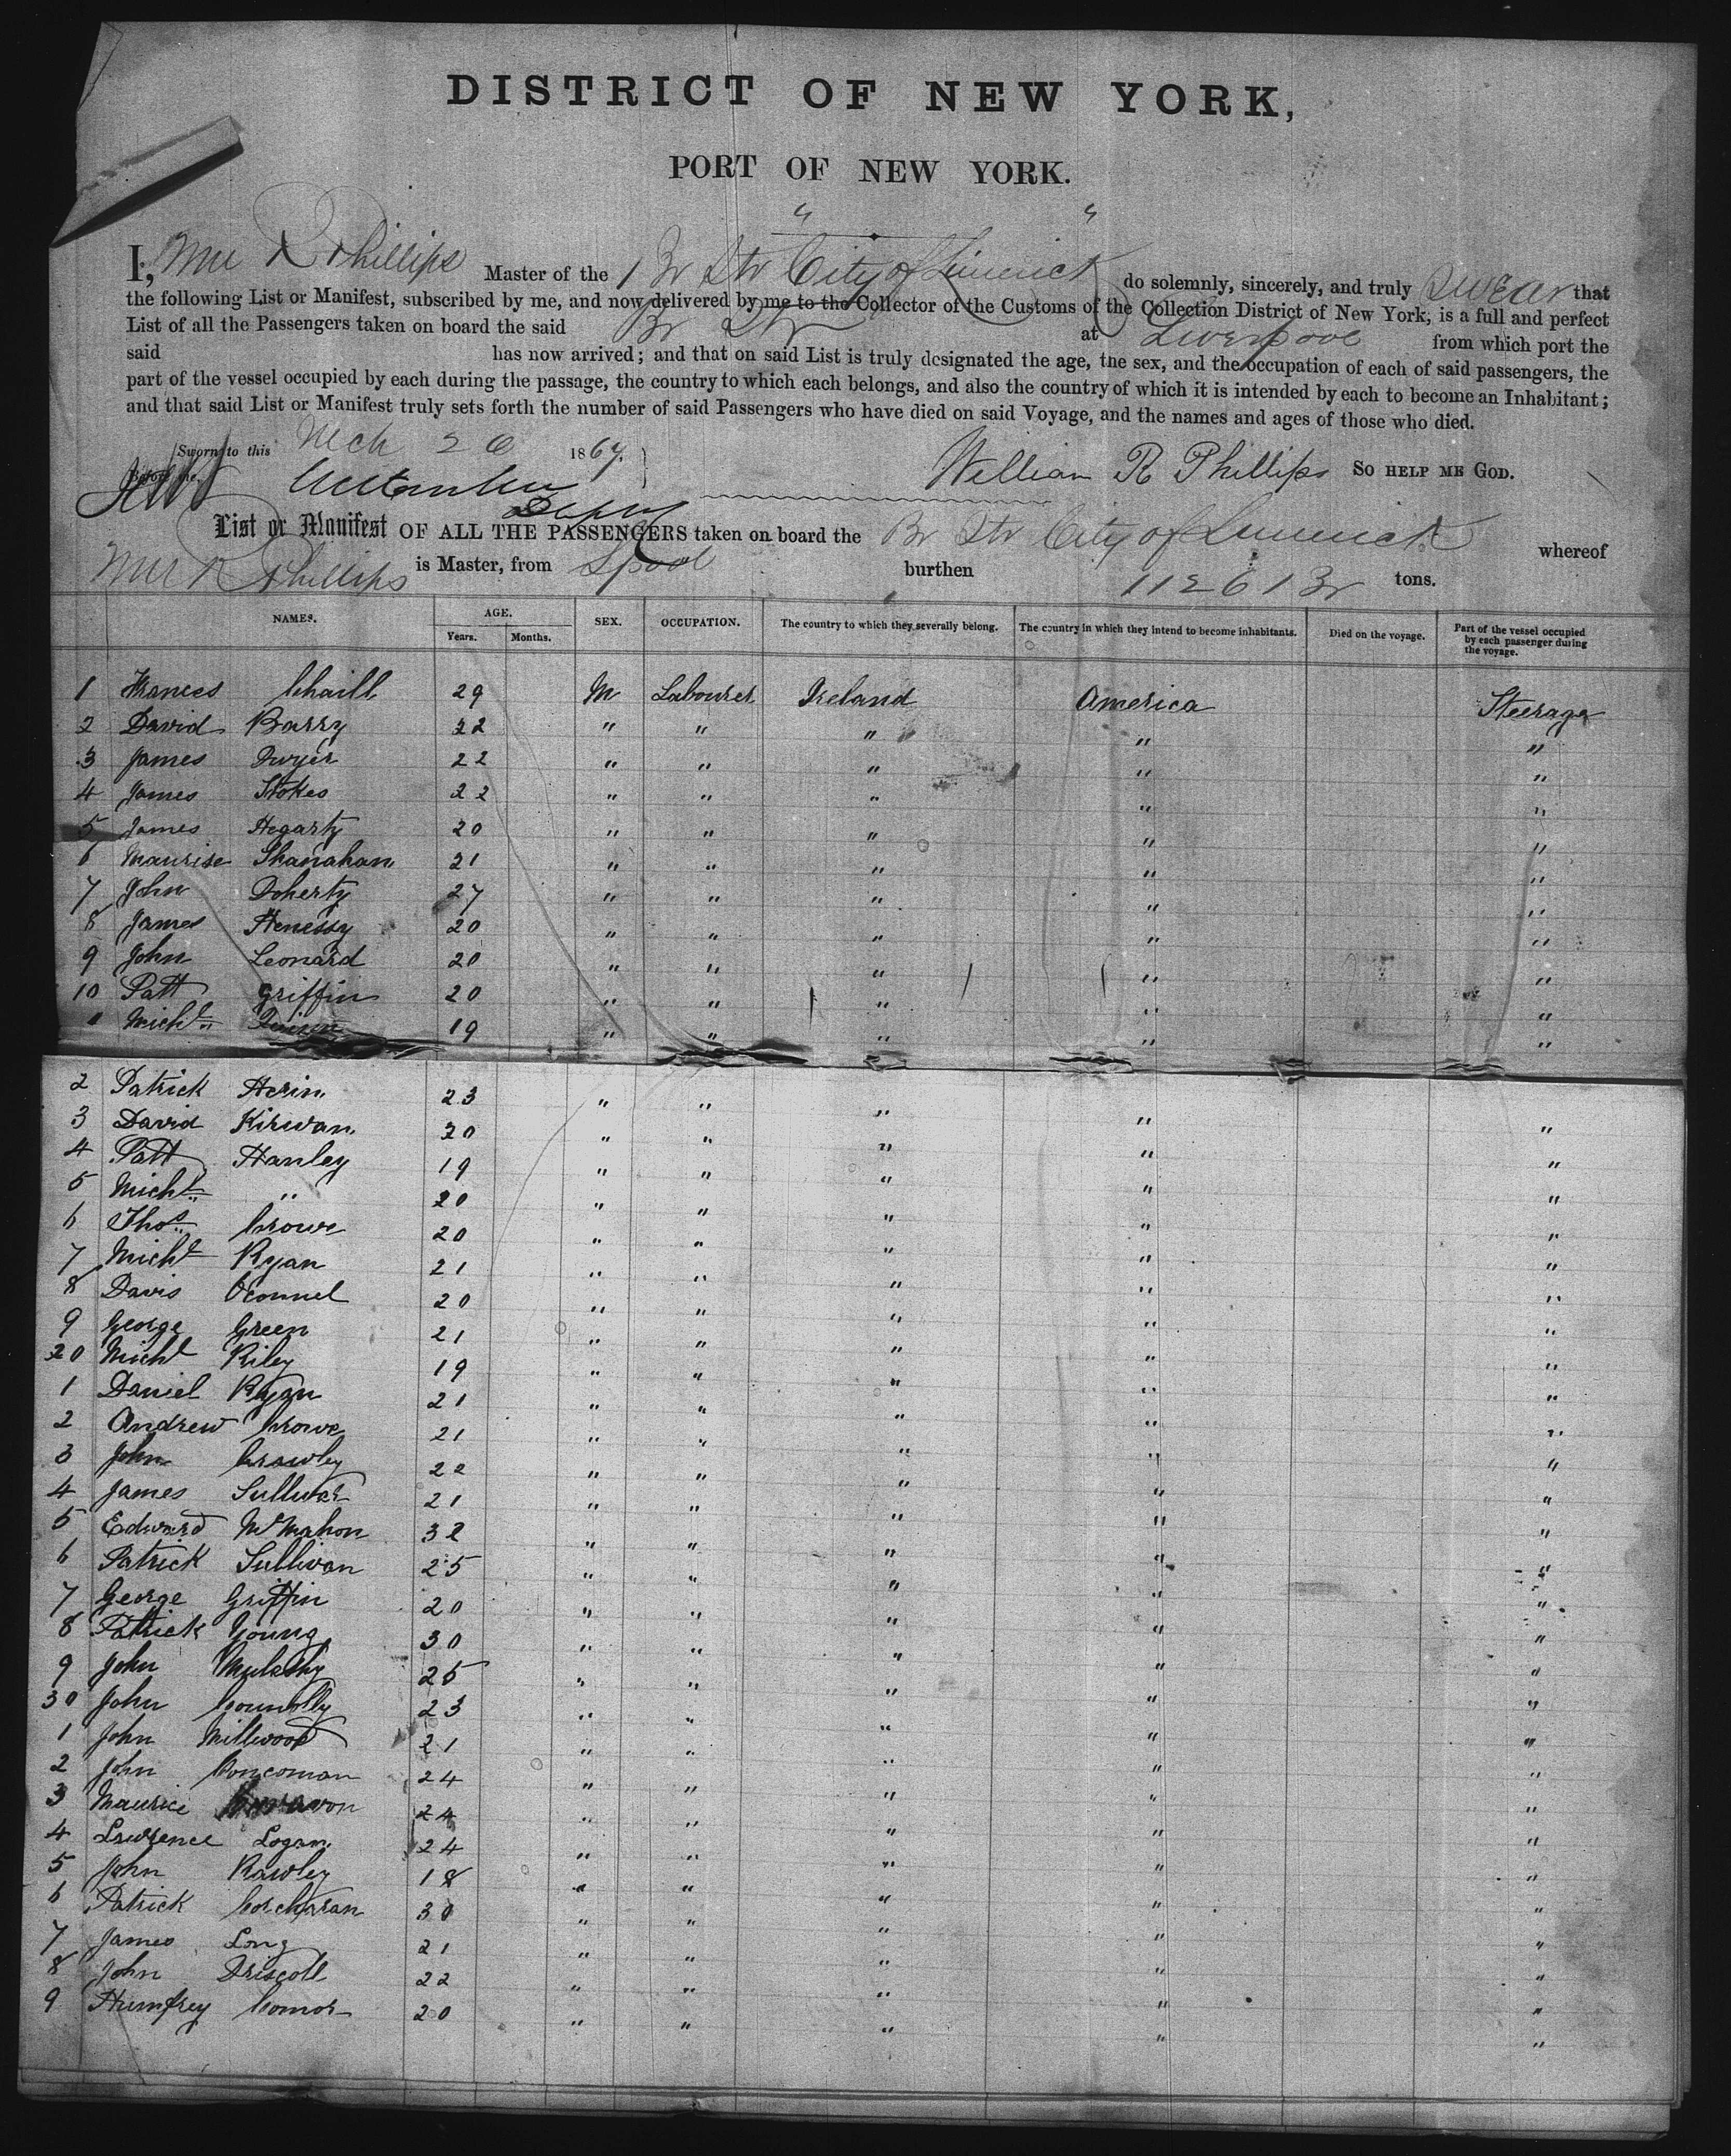 DISTRICT OF NEW YORK,
PORT OF NEW YORK.
I, Wm R Phillips Master of the Br Str City of Limerick do solemnly, sincerely, and truly swear that
the following List or Manifest, subscribed by me, and now delivered by me to the Collector of the Customs of the Collection District of New York, is a full and perfect
List of all the Passengers taken on board the said Br Str at Liverpool from which port the
said has now arrived; and that on said List is truly designated the age, the sex, and the occupation of each of said passengers, the
part of the vessel occupied by each during the passage, the country to which each belongs, and also the country of which it is intended by each to become an Inhabitant;
and that said List or Manifest truly sets forth the number of said Passengers who have died on said Voyage, and the names and ages of those who died.
Sworn to this Mch 26 1867. William R Phillips SO HELP ME GOD.
Before me,
List or Manifest OF ALL THE PASSENGERS taken on board the Br Str City of Limerick whereof
Wm R Phillips is Master, from Lpool burthen tons.
NAMES. AGE. SEX. OCCUPATION. The country to which they severally belong. The country in which they intend to become inhabitants. Died on the voyage. Part of the vessel occupied by each passenger during the voyage.
Years. Months.
1 Frances 29 M Labourer Ireland America Steerage
2 David Barry 22 " " " " "
3 James Dwyer 22 " " " " "
4 James Stokes 22 " " " " "
5 James Hegarty 20 " " " " "
6 Maurise Shanahan 21 " " " " "
7 John Doherty 27 " " " " "
8 James Henessy 20 " " " " "
9 John Leonard 20 " " " " "
10 Patt Griffin 20 " " " " "
" Michl 19 " " " " "
2 Patrick Herin 23 " " " " "
3 David Kirwan 20 " " " " "
4 Patt Hanley 19 " " " " "
5 Michl " 20 " " " " "
6 Thos Crowe 20 " " " " "
7 Michl Ryan 21 " " " " "
8 Davis Oconnel 20 " " " " "
9 George Green 21 " " " " "
20 Michl Riley 19 " " " " "
1 Daniel Ryan 21 " " " " "
2 Andrew Crowe 21 " " " " "
3 John Crowley 22 " " " " "
4 James Sullivan 21 " " " " "
5 Edward McMahon 32 " " " " "
6 Patrick Sullivan 25 " " " " "
7 George Griffin 20 " " " " "
8 Patrick Young 30 " " " " "
9 John 25 " " " " "
30 John Connolly 23 " " " " "
1 John Millwood 21 " " " " "
2 John Concoman 24 " " " " "
3 Maurice 24 " " " " "
4 Lawrence Logan 24 " " " " "
5 John Rawley 18 " " " " "
6 Patrick Corcharan 30 " " " " "
7 James Long 21 " " " " "
8 John Driscoll 22 " " " " "
9 Humfrey Connor 20 " " " " "